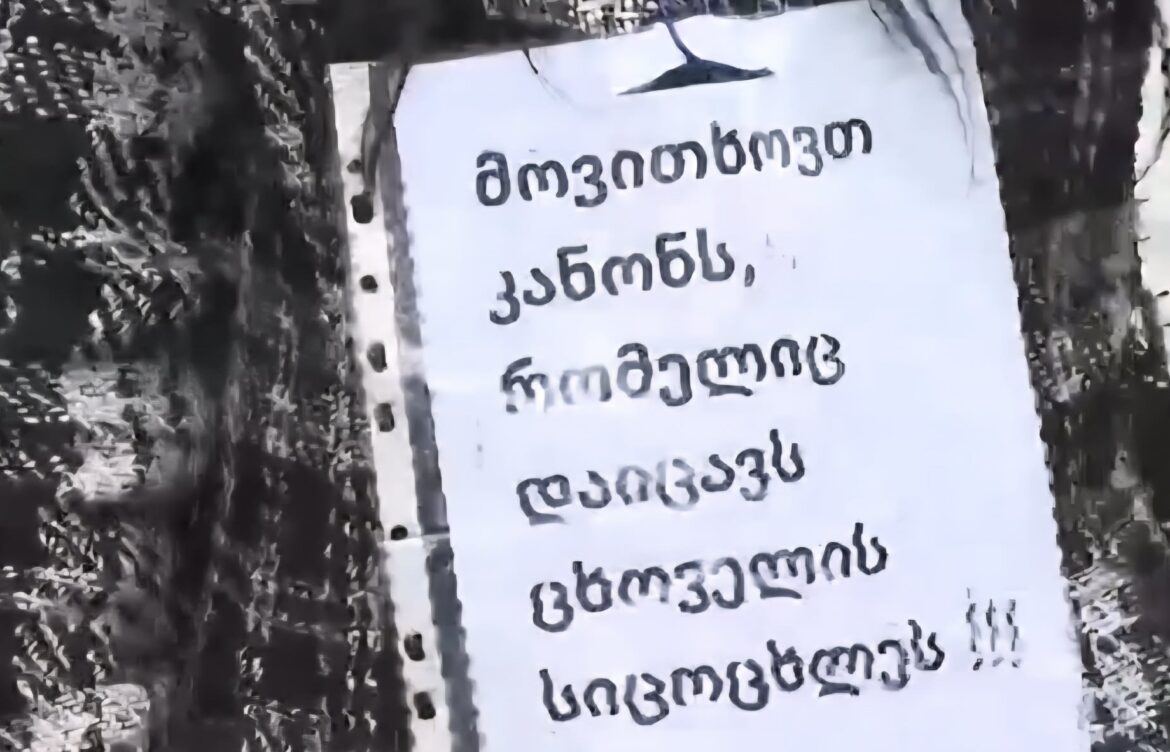 მოვითხოვთ
კანონს,
რომელიც
დაიცავს
ცხოველის
სიცოცხლეს !!!